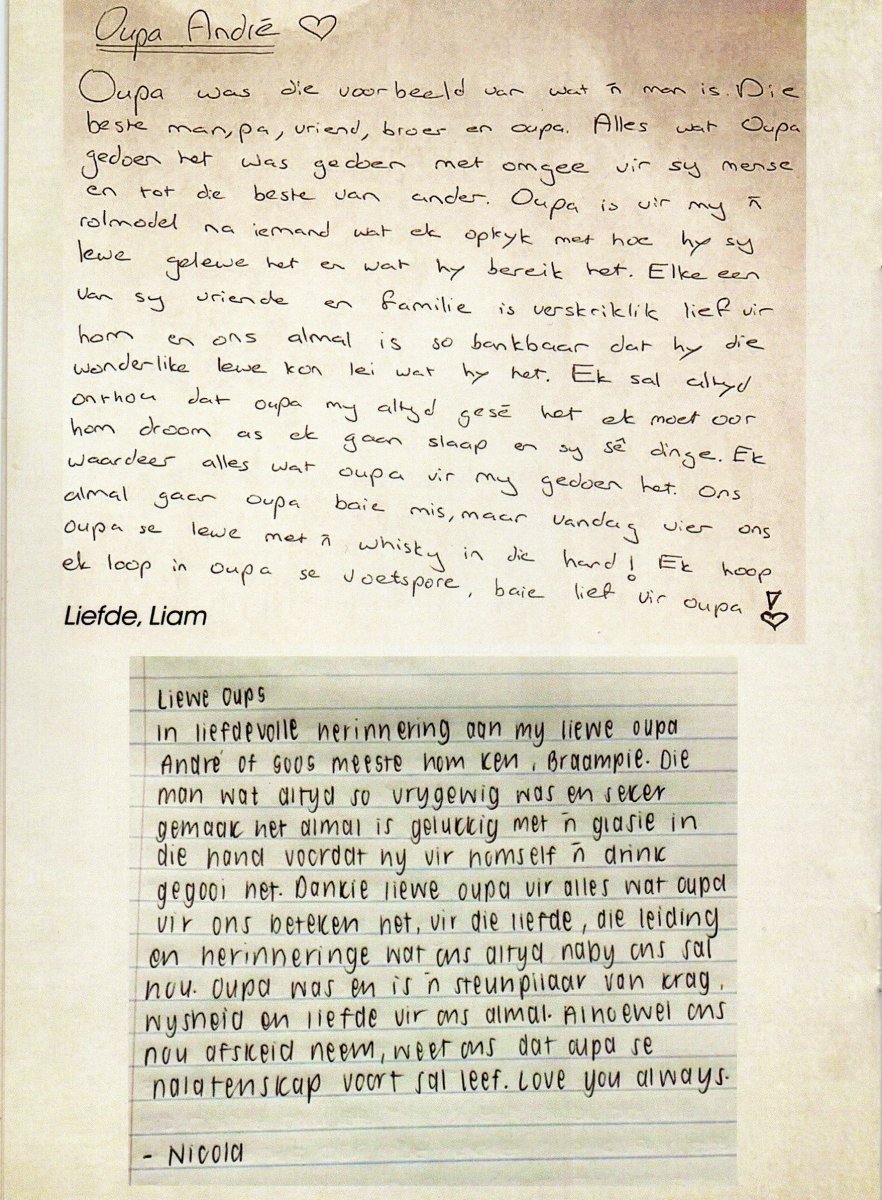 Oupa André ♡
Oupa was die voorbeeld van wat ñ man is. Die
beste man, pa, vriend, broer en oupa. Alles wat Oupa
gedoen het was gedoen met omgee vir sy mense
en tot die beste van ander. Oupa is vir my ñ
rolmodel na iemand wat ek opkyk met hoe hy sy
lewe gelewe het en wat hy bereik het. Elke een
van sy vriende en familie is verskriklik lief vir
hom en ons almal is so bankbaar dat hy die
wonderlike lewe kon lei wat hy het. Ek sal altyd
onthou dat oupa my altyd gesê het ek moet oor
hom droom as ek gaan slaap en sy sê dinge. Ek
waardeer alles wat oupa vir my gedoen het. Ons
almal gaan oupa baie mis, maar vandag vier ons
oupa se lewe met ñ whisky in die hand! Ek hoop
ek loop in oupa se voetspore, baie lief vir oupa ! ♡
Liefde, Liam
Liewe Oups
In liefdevolle herinnering aan my liewe oupa
André of soos meeste hom ken, Braampie. Die
man wat altyd so vrygewig was en seker
gemaak het almal is gelukkig met ñ glasie in
die hand voordat hy vir homself ñ drink
gegooi het. Dankie liewe oupa vir alles wat oupa
vir ons beteken het, vir die liefde, die leiding
en herinneringe wat ons altyd naby ons sal
hou. Oupa was en is ñ steunpilaar van krag,
wysheid en liefde vir ons almal. Alhoewel ons
nou afskeid neem, weet ons dat oupa se
nalatenskap voort sal leef. Love you always.
- Nicola